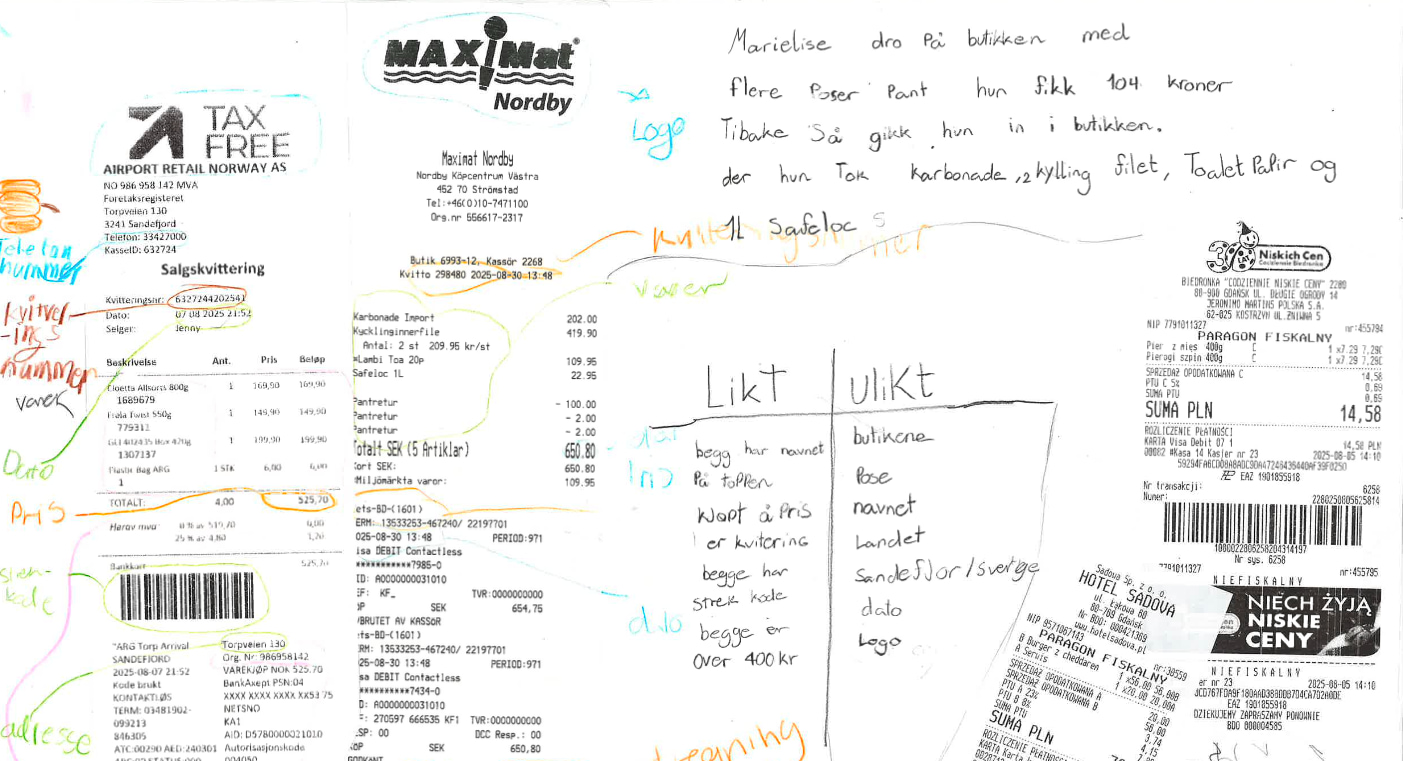 TAX
FREE
AIRPORT RETAIL NORWAY AS
NO 986 958 142 MVA
Foretaksregisteret
Torpveien 130
3241 Sandefjord
Telefon: 33427000
KasseID: 632724
Salgskvittering
Kvitteringsnr: 6327244202541
Dato: 07 08 2025 21:52
Selger: Jenny
Beskrivelse Ant. Pris Beløp
Cloetta Allsorts 800g 1 169,90 169,90
1689679
Freia Twist 550g 1 149,90 149,90
779312
1 199,90 199,90
1307137
Plastic Bag ARG 1 STK 6,00 6,00
1
TOTALT: 4,00 525,70
Herav mva 0 % av 519,70 0,00
25 % av 4,80 1,20
Bankkort 525,70
*ARG Torp Arrival Torpveien 130
SANDEFJORD Org. Nr: 986958142
2025-08-07 21:52 VAREKJØP NOK 525.70
Kode brukt BankAxept PSN:04
KONTAKTLØS XXXX XXXX XXXX XX53 75
TERM: 03481902- NETSNO
099213 KA1
846305 AID: D5780000021010
ATC:00290 AED:240301 Autorisasjonskode
Telefon
nummer
Kvitter
-ings
nummer
varer
Dato
Pris
strek-
kode
adresse
MAXiMat
Nordby
Maximat Nordby
Nordby Köpcentrum Västra
452 70 Strömstad
Tel:+46(0)10-7471100
Org.nr 556617-2317
Butik 6993-12, Kassör 2268
Kvitto 298480 2025-08-30 13:48
Karbonade Import 202.00
Kycklinginnerfile 419.90
Antal: 2 st 209.95 kr/st
*Lambi Toa 20p 109.95
Safeloc 1L 22.95
Pantretur - 100.00
Pantretur - 2.00
Pantretur - 2.00
Totalt SEK (5 Artiklar) 650.80
Kort SEK: 650.80
Miljömärkta varor: 109.95
ets-BD-(1601)
ERM: 13533253-467240/ 22197701
025-08-30 13:48 PERIOD:971
isa DEBIT Contactless
***********7985-0
ID: A0000000031010
EF: KF_ TVR:0000000000
ÖP SEK 654,75
VBRUTET AV KASSÖR
ets-BD-(1601)
ERM: 13533253-467240/ 22197701
025-08-30 13:48 PERIOD:971
isa DEBIT Contactless
***********7434-0
D: A0000000031010
F: 270597 666535 KF1 TVR:0000000000
LSP: 00 DCC Resp.: 00
KÖP SEK 650,80
GODKÄNT
Logo
varer
dato
Marielise dro På butikken med
flere Poser Pant hun fikk 104 kroner
Tibake Så gikk hun in i butikken.
der hun Tok karbonade, 2 kylling filet, Toalet Papir og
1L Safeloc
Likt Ulikt
begg har navnet
På toppen
Kjopt å Pris
er kvitering
begge har
strek kode
begge er
Over 400 kr
butikene
Pose
navnet
Landet
Sandefjor/sverige
dato
Logo
Niskich Cen
Codziennie Biedronka
BIEDRONKA "CODZIENNIE NISKIE CENY" 2280
80-900 GDAŃSK UL. DŁUGIE OGRODY 14
JERONIMO MARTINS POLSKA S.A.
62-025 KOSTRZYN UL.ŻNIWNA 5
NIP 7791011327 nr:455794
PARAGON FISKALNY
Pier z mięs 400g C 1 x7.29 7,29C
Pierogi szpin 400g C 1 x7.29 7,29C
SPRZEDAŻ OPODATKOWANA C 14,58
PTU C 5% 0,69
SUMA PTU 0,69
SUMA PLN 14,58
ROZLICZENIE PŁATNOŚCI
KARTA Visa Debit 07 1 14,58 PLN
00082 #Kasa 14 Kasjer nr 23 2025-08-05 14:10
EAZ 1901855918
Nr transakcji: 6258
Numer: 2280250805625814
1000022806258204314197
Nr sys. 6258
7791011327 nr:455795
NIEFISKALNY
NIECH ŻYJĄ
NISKIE
CENY
NIEFISKALNY
er nr 23 2025-08-05 14:10
EAZ 1901855918
DZIĘKUJEMY ZAPRASZAMY PONOWNIE
BDO 000004585
Sadova Sp. z o.o.
HOTEL SADOVA
ul. Łąkowa 60
80-769 Gdańsk
Nr BDO: 000421369
www.hotelsadova.pl
NIP 9571067183 nr:30559
PARAGON FISKALNY
B Burger z cheddarem 1 x56,00 56,00B
A Serwis 1 x20,00 20,00A
SPRZEDAŻ OPODATKOWANA A 20,00
SPRZEDAŻ OPODATKOWANA B 56,00
PTU A 23% 3,74
PTU B 8% 4,15
SUMA PTU
SUMA PLN
ROZLICZENIE PŁATNOŚCI